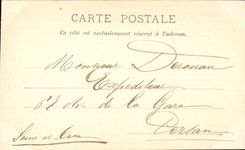 CARTE POSTALE
Ce côté est exclusivement réservé à l'adresse.
Monsieur Derouau
Expéditeur
63 Av. de la Gare
Persan
Seine et Oise